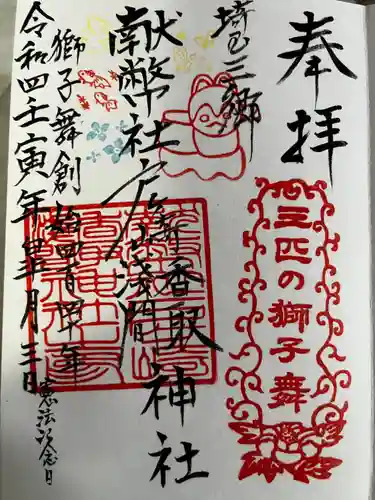 奉拝
三匹の獅子舞
埼玉三郷
献幣社
香取
浅間
神社
獅子舞創始四百 年
令和四壬寅年五月三日
憲法記念日